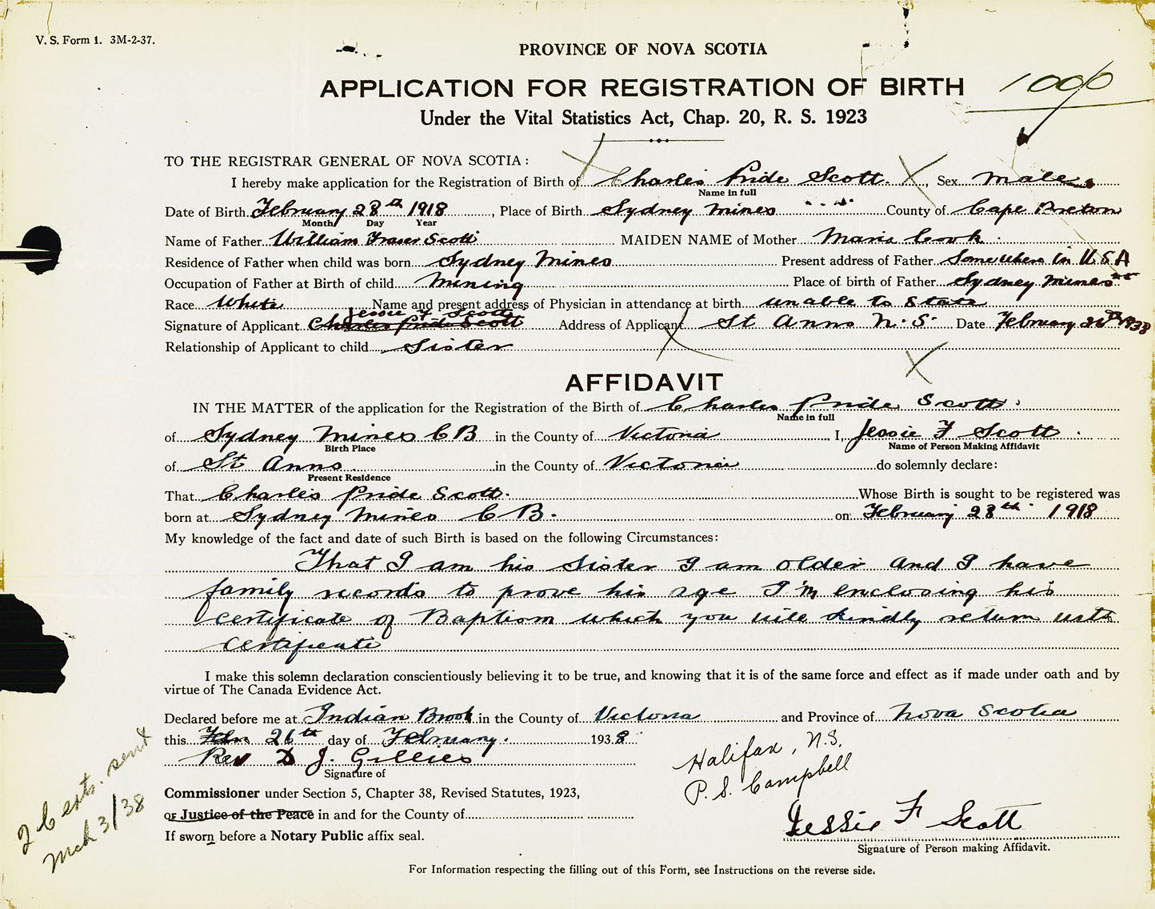 V. S. Form 1. 3M-2-37.
PROVINCE OF NOVA SCOTIA
APPLICATION FOR REGISTRATION OF BIRTH
Under the Vital Statistics Act, Chap. 20, R. S. 1923
TO THE REGISTRAR GENERAL OF NOVA SCOTIA:
I hereby make application for the Registration of Birth of Charles Pride Scott. Sex Male
Name in full
Date of Birth February 28th 1918, Place of Birth Sydney Mines County of Cape Breton
Month Day Year
Name of Father William Fraser Scott MAIDEN NAME of Mother Maria Cook.
Residence of Father when child was born Sydney Mines Present address of Father Somewhere in U.S.A
Occupation of Father at Birth of child Mining Place of birth of Father Sydney Mines
Race White Name and present address of Physician in attendance at birth unable to State
Jessie F Scott
Signature of Applicant Charles Pride Scott Address of Applicant St Anns N.S. Date February 26th 1938
Relationship of Applicant to child Sister
AFFIDAVIT
IN THE MATTER of the application for the Registration of the Birth of Charles Pride Scott.
Name in full
of Sydney Mines CB in the County of Victoria I, Jessie F Scott.
Birth Place Name of Person Making Affidavit
of St Anns in the County of Victoria do solemnly declare:
Present Residence
That Charles Pride Scott. Whose Birth is sought to be registered was
born at Sydney Mines CB. on February 28th 1918
My knowledge of the fact and date of such Birth is based on the following Circumstances:
That I am his Sister I am older and I have
family records to prove his age I'm enclosing his
Certificate of Baptism which you will kindly return with
Certificate
I make this solemn declaration conscientiously believing it to be true, and knowing that it is of the same force and effect as if made under oath and by
virtue of The Canada Evidence Act.
Declared before me at Indian Brook in the County of Victoria and Province of Nova Scotia
this 26th day of February. 1938
Rev D J. Gillies
Signature of
Halifax, N.S.
P.S. Campbell
Commissioner under Section 5, Chapter 38, Revised Statutes, 1923,
or Justice of the Peace in and for the County of
If sworn before a Notary Public affix seal.
Jessie F Scott
Signature of Person making Affidavit.
2 Certs. sent
Mch 3/38
For Information respecting the filling out of this Form, see Instructions on the reverse side.